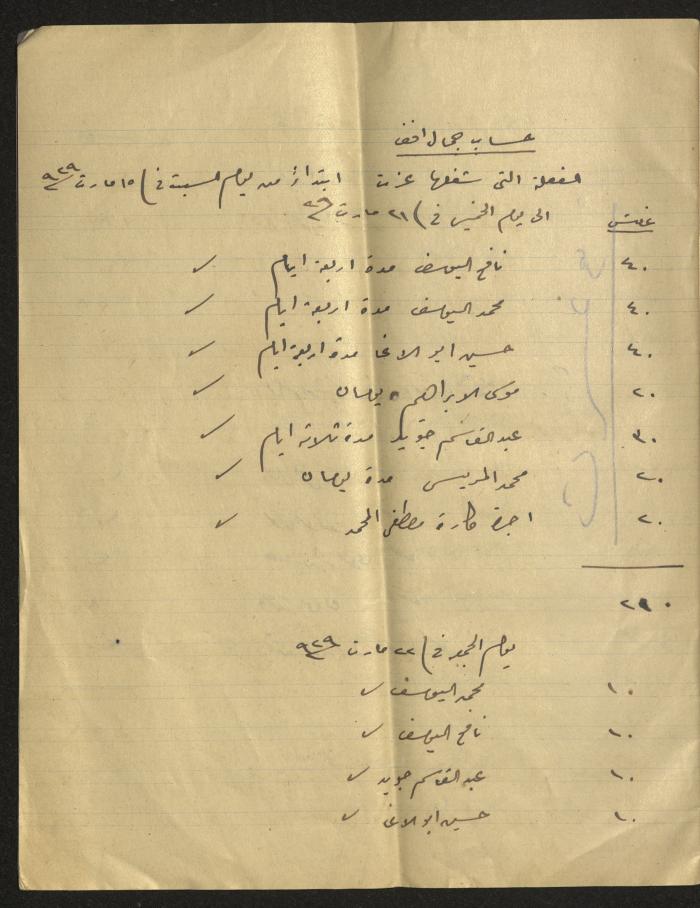 حساب جمال افندي
الفعلة التي شغلها عزت ابتداءً من يوم السبت في ١٥ مارت ٩٢٩
الى يوم الخميس في ٢١ مارت ٩٢٩
غرش
٤٠ نافع اليوسف مدة اربعة ايام ✓
٤٠ محمد اليوسف مدة اربعة ايام ✓
٤٠ حسين ابو الاغا مدة اربعة ايام ✓
٢٠ موسى الابراهيم يومان ✓
٣٠ عبد القاسم جويد مدة ثلاثة ايام ✓
٢٠ محمد مدة يومان ✓
٢٠ اجرة كارة مصطفى المحمد ✓
٢٩٠
يوم الجمعة في ٢٢ مارت ٩٢٩
١٠ محمد اليوسف ✓
١٠ نافع اليوسف ✓
١٠ عبد القاسم جويد ✓
١٠ حسين ابو الاغا ✓